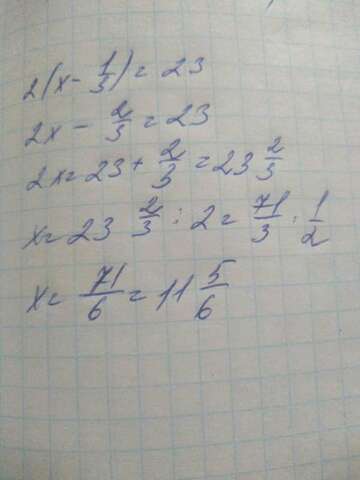 2(x - 1/3) = 23
2x - 2/3 = 23
2x = 23 + 2/3 = 23 2/3
x = 23 2/3 : 2 = 71/3 · 1/2
x = 71/6 = 11 5/6